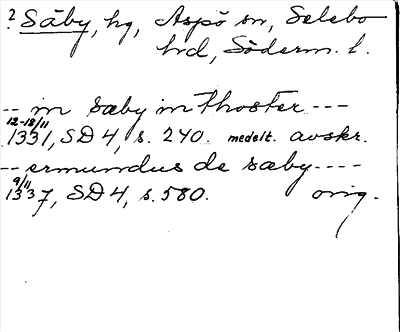 ? Säby, hg, Aspö sn, Selebo
hrd, Söderm. l.
-- in sæby in thoster ---
12-18/11
1331, SD 4, s. 240. medelt. avskr.
-- ermundus de sæby ----
9/11
1337, SD 4, s. 580. orig.